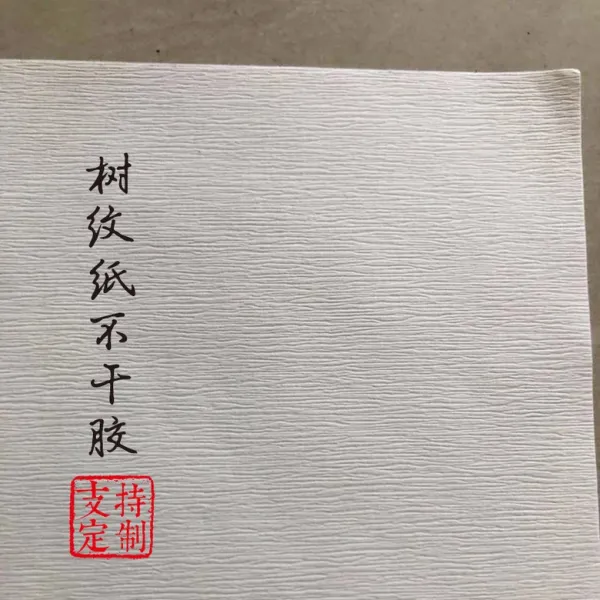 树纹纸不干胶
支持
定制